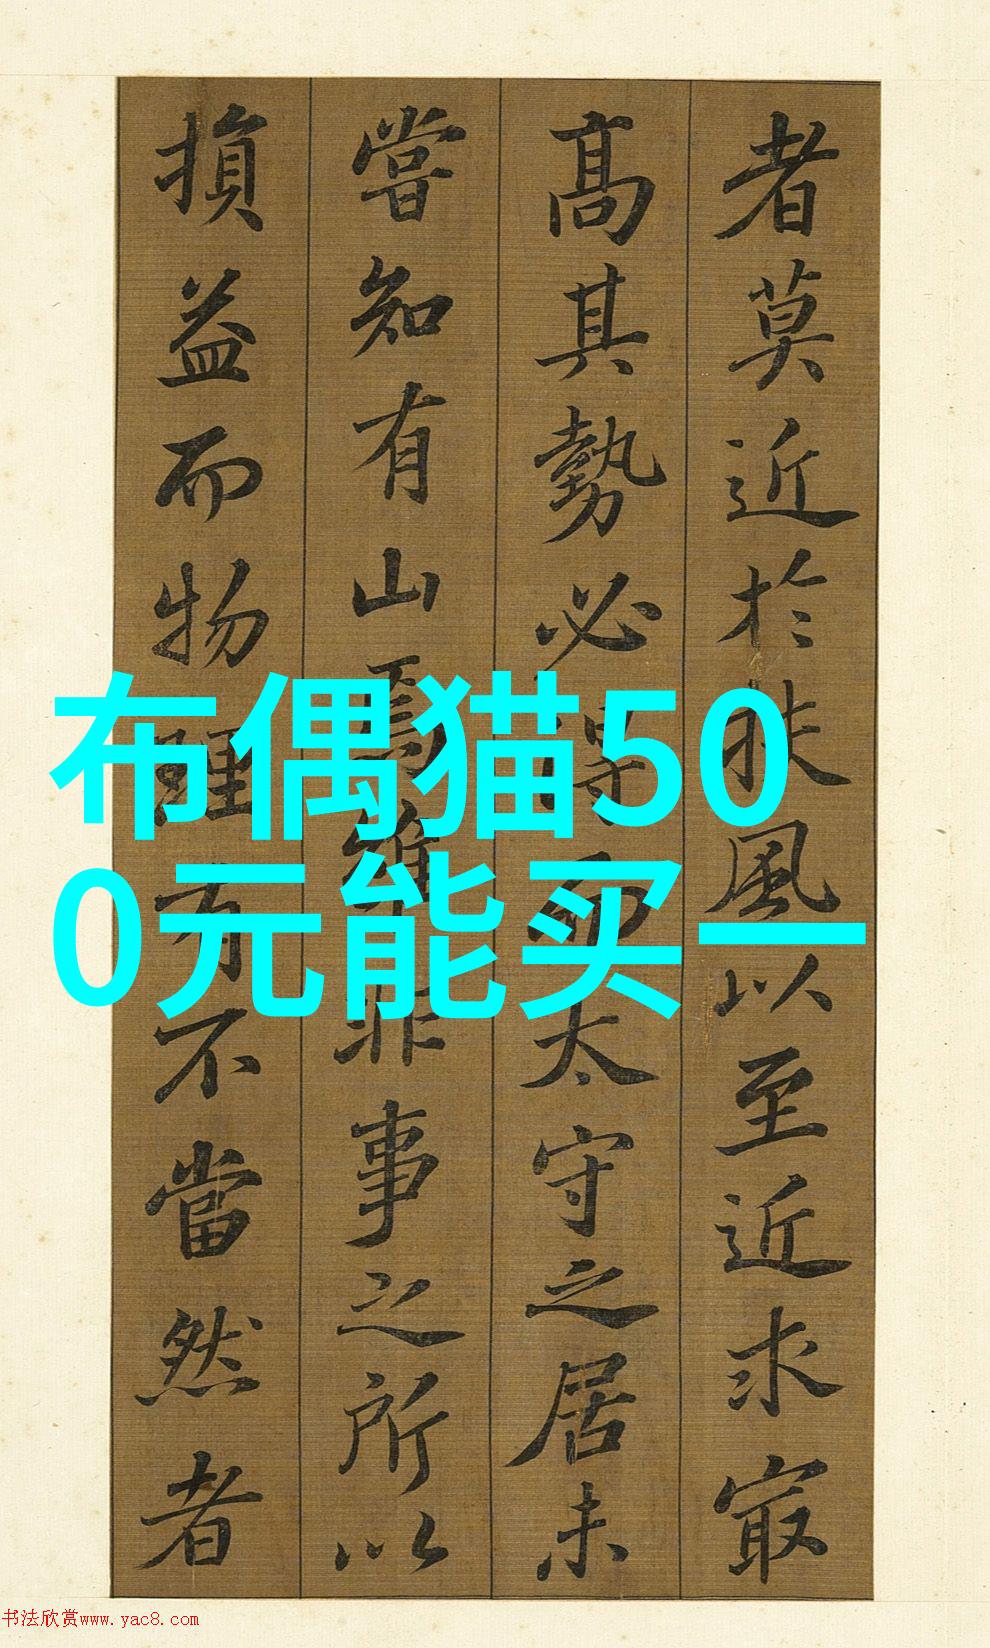 者莫近於扶風以至近求㝡
髙其勢必得而太守之居未
嘗知有山焉雖非事之所以
損益而物理有不當然者
布偶猫50
0元能买一
书法欣赏www.yac8.com